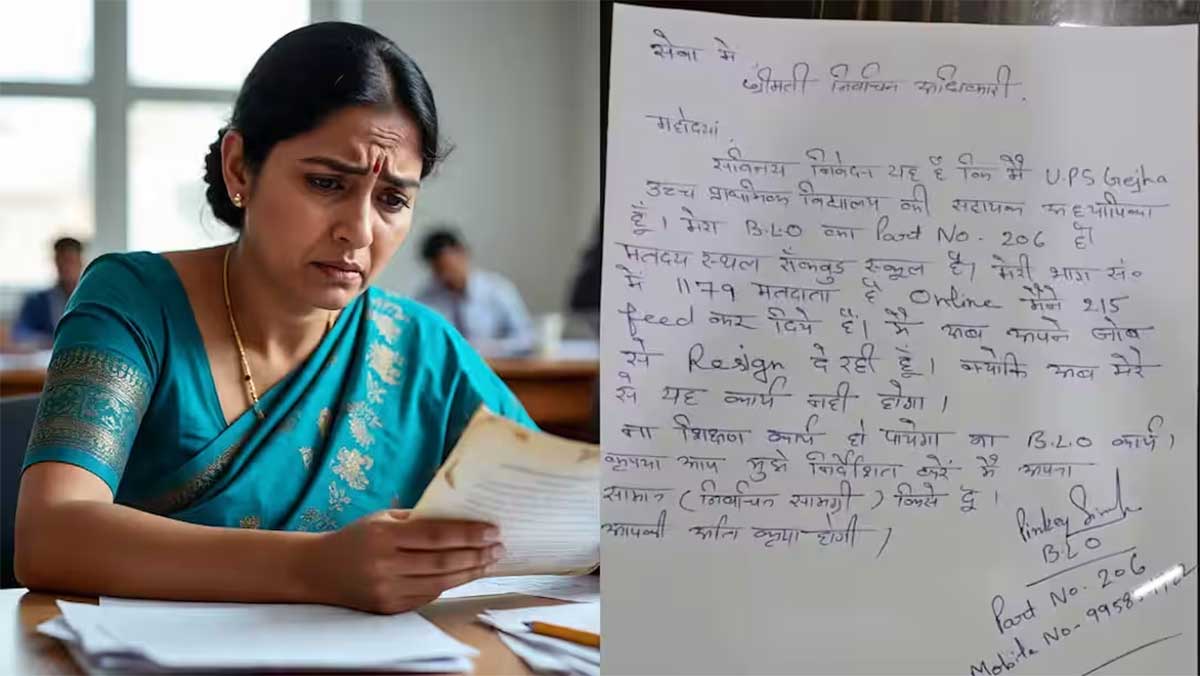 सेवा में
श्रीमती निर्वाचन अधिकारी.
महोदया,
सविनय निवेदन यह है कि मैं U.P.S Gejha
उच्च प्राथमिक विद्यालय की सहायक अध्यापिका
हूँ। मेरा B.L.O का Part No. 206 है।
मतदय स्थल रॉकवुड स्कूल है। मेरी भाग सं०
में 1179 मतदाता हैं Online मैंने 215
feed कर दिये हैं। मैं अब अपने जॉब
से Resign दे रही हूँ। क्योकि अब मेरे
से यह कार्य नही होगा।
ना शिक्षण कार्य हो पायेगा ना B.L.O कार्य।
कृपया आप मुझे निर्देशित करें मैं अपना
सामान (निर्वाचन सामग्री) किसे दूं।
आपकी अति कृपा होगी।
Pinkey Singh
B.L.O
Part No. 206
Mobile No-